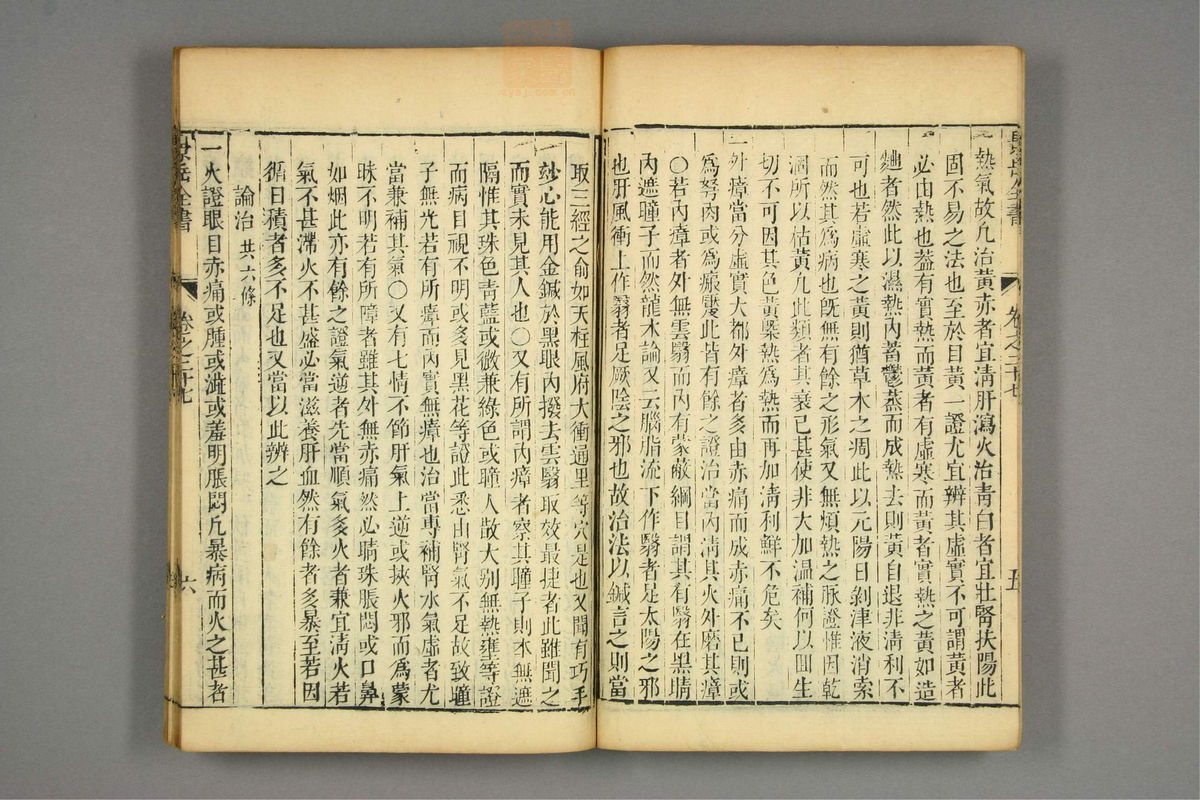 景岳全書 卷之二十七 五
熱氣故凡治黃赤者宜清肝瀉火治青白者宜壯腎扶陽此
固不易之法也至於目黃一證尤宜辨其虛實不可謂黃者
必由熱也葢有實熱而黃者有虛寒而黃者實熱之黃如造
麯者然此以濕熱內蓄鬱蒸而成熱去則黃自退非清利不
可也若虛寒之黃則猶草木之凋此以元陽日剝津液消索
而然其爲病也旣無有餘之形氣又無煩熱之脉證惟因乾
涸所以枯黃凡此類者其衰已甚使非大加溫補何以回生
切不可因其色黃槩熱爲熱而再加清利鮮不危矣
一外瘴當分虛實大都外瘴者多由赤痛而成赤痛不已則或
爲努肉或爲瘢靨此皆有餘之證治當內清其火外磨其瘴
○若內瘴者外無雲翳而內有蒙蔽綱目謂其有翳在黑睛
內遮瞳子而然龍木論又云腦脂流下作翳者足太陽之邪
也肝風衝上作翳者足厥陰之邪也故治法以鍼言之則當
取三經之俞如天柱風府大衝通里等穴是也又聞有巧手
妙心能用金鍼於黑眼內撥去雲翳取效最捷者此雖聞之
而實未見其人也○又有所謂內瘴者察其瞳子則本無遮
隔惟其珠色青藍或微兼綠色或瞳人散大别無熱壅等證
而病目視不明或多見黑花等證此悉由腎氣不足故致瞳
子無光若有所瘴而內實無瘴也治當專補腎水氣虛者尤
當兼補其氣○又有七情不節肝氣上逆或挾火邪而爲蒙
昧不明若有所障者雖其外無赤痛然必睛珠脹悶或口鼻
如烟此亦有餘之證氣逆者先當順氣多火者兼宜清火若
氣不甚滯火不甚盛必當滋養肝血然有餘者多暴至若因
循日積者多不足也又當以此辨之
論治 共六條
一火證眼目赤痛或腫或澁或羞明脹悶凡暴病而火之甚者
景岳全書 卷之二十七 六
zysj.com.cn